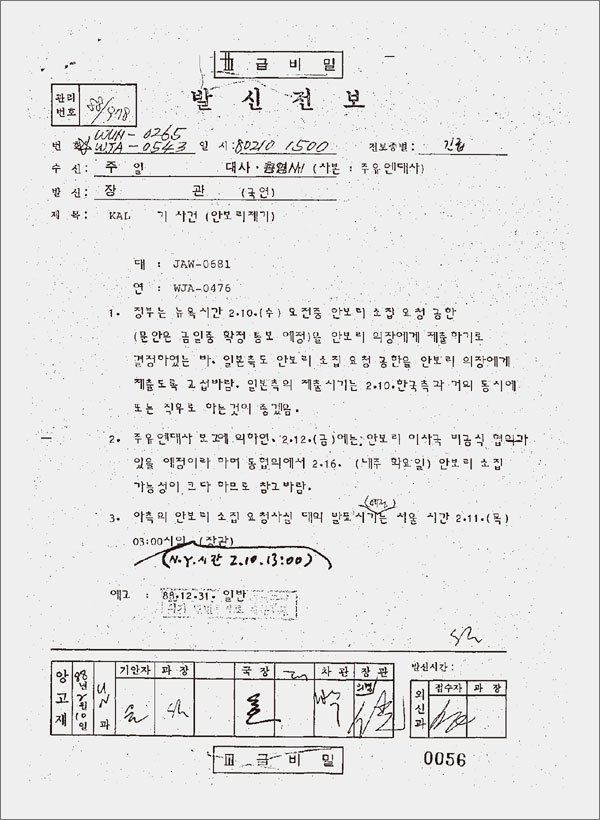 Ⅲ 급 비 밀
발 신 전 보
관리
번호
88/978
번 호 WUN-0265
WJA-0543 일 시: 80210 1500 전보종별: 긴급
수 신: 주 일 대사 (사본 : 주유엔대사)
발 신: 장 관 (국연)
제 목: KAL 기 사건 (안보리제기)
대 : JAW-0681
연 : WJA-0476
1. 정부는 뉴욕시간 2.10.(수) 오전중 안보리 소집 요청 공한
(문안은 금일중 확정 통보 예정)을 안보리 의장에게 제출하기로
결정하였는 바, 일본측도 안보리 소집 요청 공한을 안보리 의장에게
제출도록 교섭바람. 일본측의 제출시기는 2.10.한국측과 거의 동시에
또는 직후로 하는것이 좋겠음.
2. 주유엔대사 보고에 의하면, 2.12.(금)에는 안보리 이사국 비공식 협의가
있을 예정이라 하며 동협의에서 2.16. (내주 화요일) 안보리 소집
가능성이 크다 하므로 참고바람.
(예정)
3. 아측의 안보리 소집 요청사실 대외 발표시기는 서울 시간 2.11.(목)
03:00시임. (장관)
(N.Y.시간 2.10.13:00)
예고 : 88.12.31. 일반
앙고재
88년 2월 10일
UN 과
기안자 과 장 국 장 차 관 장 관
발신시간 :
외신과
접수자 과 장
Ⅲ 급 비 밀
0056